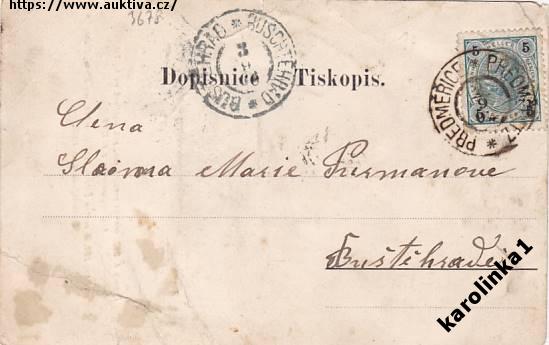 https://www.auktiva.cz/
3678
BUSTEHRAD * BUSCHTĚHRAD *
3
Dopisnice Tiskopis.
5 5
PŘEDMĚŘICE *
Ctena
Slečna Marie Furmanove
Buštěhrade
karolinka1